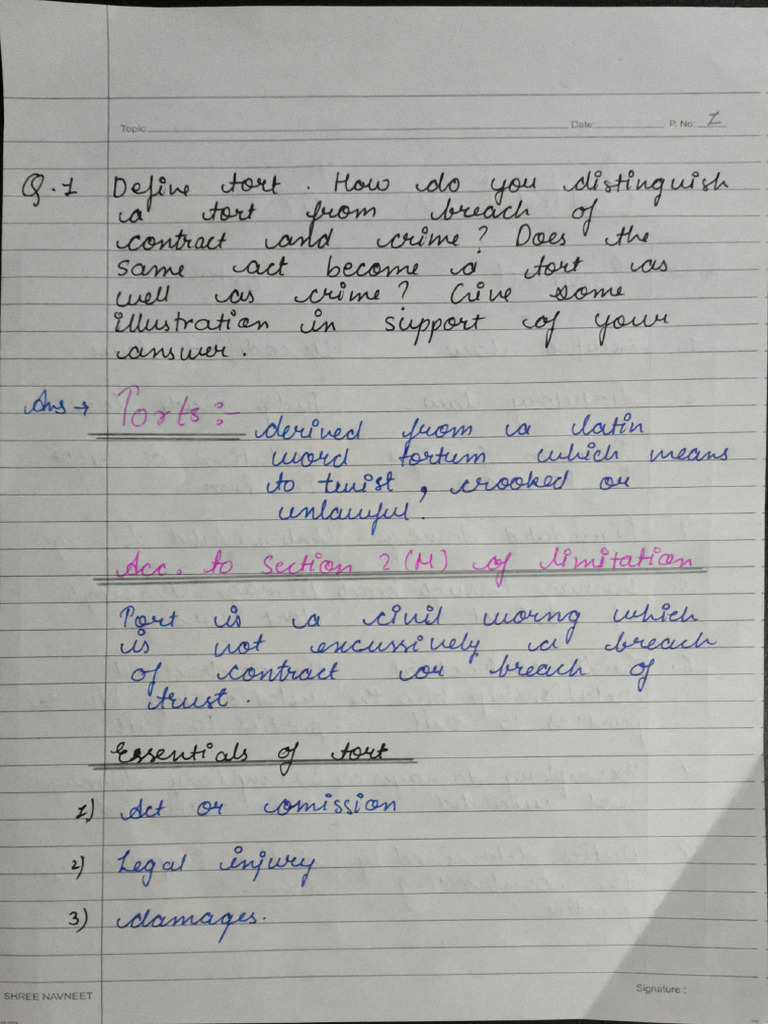 Topic Date: P. No: 1
Q.1 Define tort. How do you distinguish
a tort from breach of
contract and crime? Does the
same act become a tort as
well as crime? Give some
illustration in support of your
answer.
Ans → Torts:-
derived from a latin
word tortum which means
to twist, crooked or
unlawful.
Acc. to Section 2(M) of limitation
Tort is a civil worng which
is not excussively a breach
of contract or breach of
trust.
Essentials of tort
1) Act or comission
2) Legal injury
3) damages.
SHREE NAVNEET Signature :